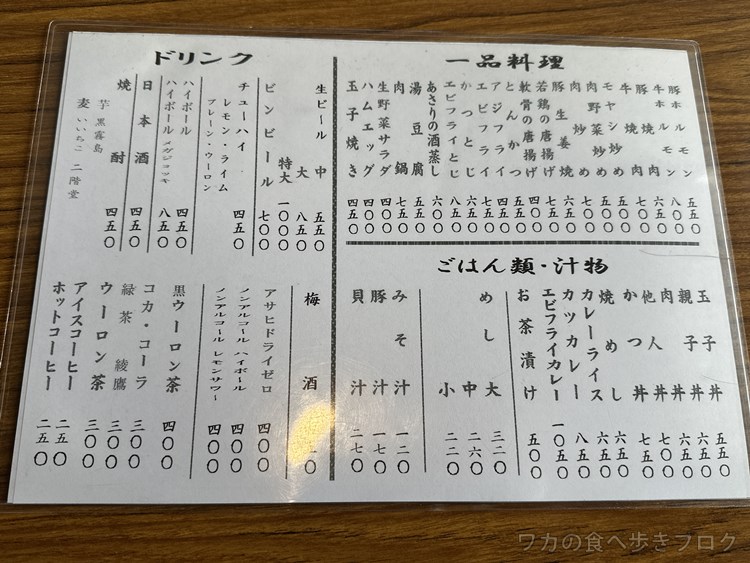 一品料理
豚ホルモン 五五〇
牛ホルモン 八〇〇
豚焼肉 六五〇
牛焼肉
モヤシ炒め
肉野菜炒め
肉炒め
豚生姜焼
若鶏の唐揚げ
軟骨の唐揚げ
とんかつ
アジフライ
エビフライ
かつとじ 七五〇
エビフライとじ 八五〇
あさりの酒蒸し 六〇〇
湯豆腐 五五〇
肉鍋 七五〇
生野菜サラダ 四〇〇
ハムエッグ 四五〇
玉子焼き 四五〇
ごはん類・汁物
玉子丼 五五〇
親子丼 六五〇
肉丼 六五〇
他人丼
かつ丼 七五〇
焼めし 六五〇
カレーライス 六五〇
カツカレー 八五〇
エビフライカレー 一〇五〇
お茶漬け 五〇〇
めし 大 三二〇
中 二六〇
小 二二〇
みそ汁 一二〇
豚汁 一七〇
貝汁 二七〇
ドリンク
生ビール 中 五五〇
大 八五〇
特大 一〇〇〇
ビンビール 七〇〇
チューハイ 四五〇
レモン・ライム
プレーン・ウーロン
ハイボール 四五〇
ハイボール メガジョッキ 八五〇
日本酒 四五〇
焼酎 四五〇
芋 黒霧島
麦 いいちこ 二階堂
梅酒
アサヒドライゼロ 四〇〇
ノンアルコール ハイボール 四〇〇
ノンアルコール レモンサワー 四〇〇
黒ウーロン茶 四〇〇
コカ・コーラ 三〇〇
緑茶 綾鷹 三〇〇
ウーロン茶 三〇〇
アイスコーヒー 二五〇
ホットコーヒー 二五〇
ワカの食べ歩きブログ